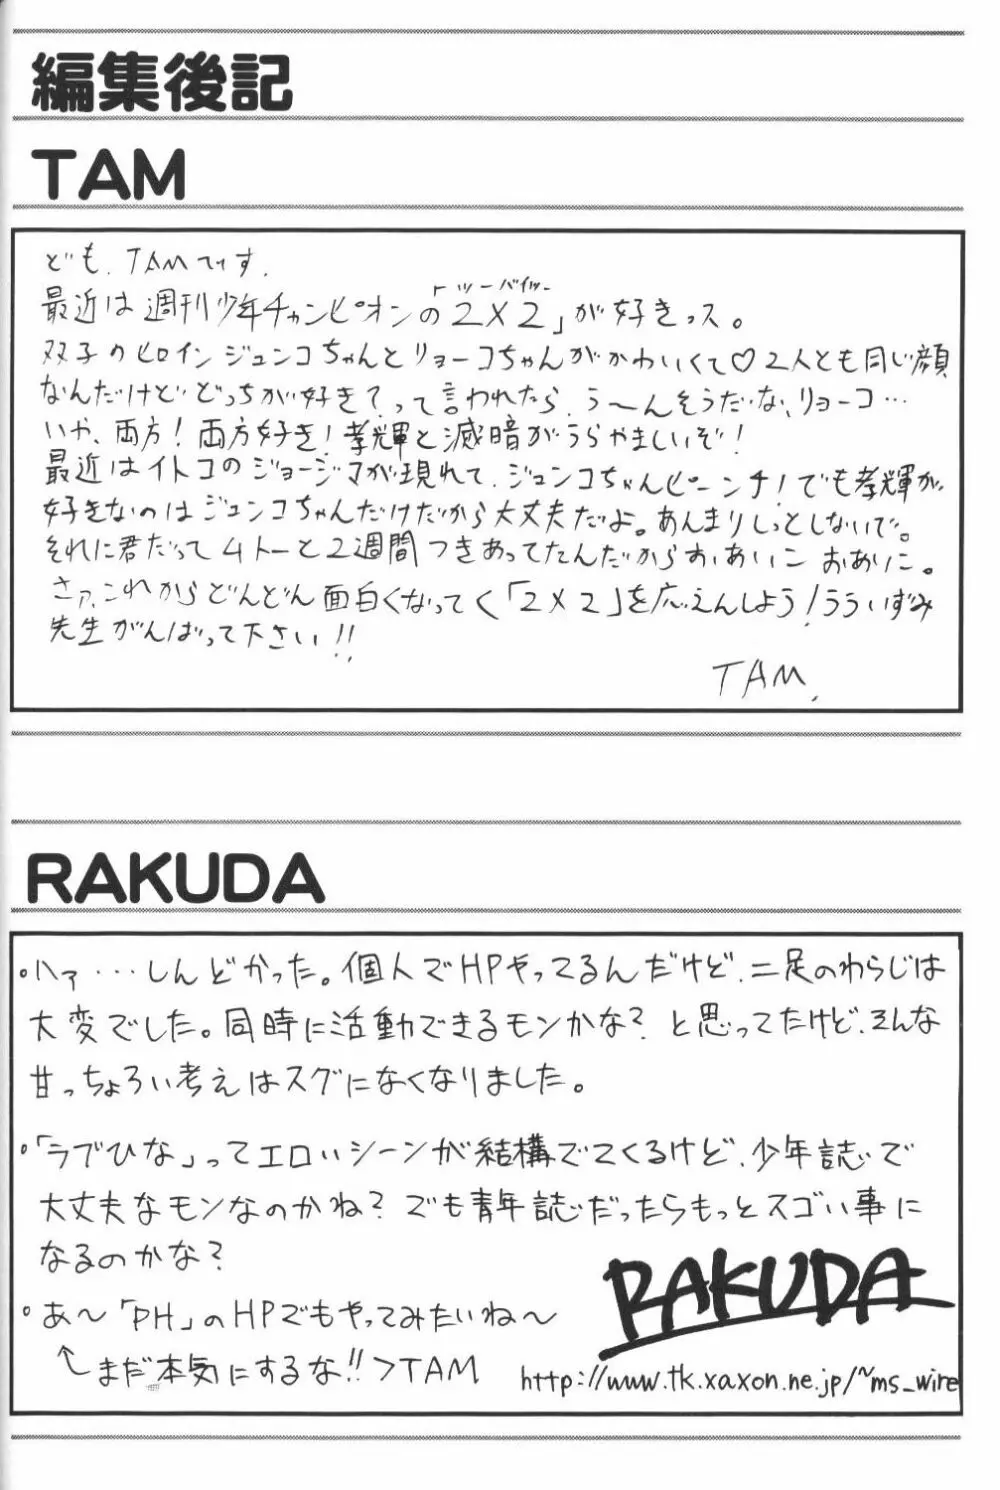 編集後記
TAM
ども、TAMです。
最近は週刊少年チャンピオンの「2×2」が好きっス。
トゥーバイツー
双子のヒロインジュンコちゃんとリョーコちゃんがかわいくて♡2人とも同じ顔
なんだけどどっちが好き?って言われたら、う〜んそうだな、リョーコ…
いや、両方!両方好き!孝輝と滅暗がうらやましいぞ!
最近はイトコのジョージマが現れて、ジュンコちゃんピーンチ!でも孝輝が、
好きなのはジュンコちゃんだけだから大丈夫だよ。あんまりしっとしないで。
それに君だってムトーと2週間つきあってたんだからおあいこおあいこ。
さァ、これからどんどん面白くなってく「2×2」を応えんしよう!うういずみ
先生がんばって下さい!!
TAM.
RAKUDA
・ハァ…しんどかった。個人でHPやってるんだけど、二足のわらじは
大変でした。同時に活動できるモンかな?と思ってたけど、そんな
甘っちょろい考えはスグになくなりました。
・「ラブひな」ってエロいシーンが結構でてくるけど、少年誌で
大丈夫なモンなのかね?でも青年誌だったらもっとスゴい事に
なるのかな?
・あ〜「PH」のHPでもやってみたいね〜
まだ本気にするな!!>TAM
RAKUDA
http://www.tk.xaxon.ne.jp/~ms_wire